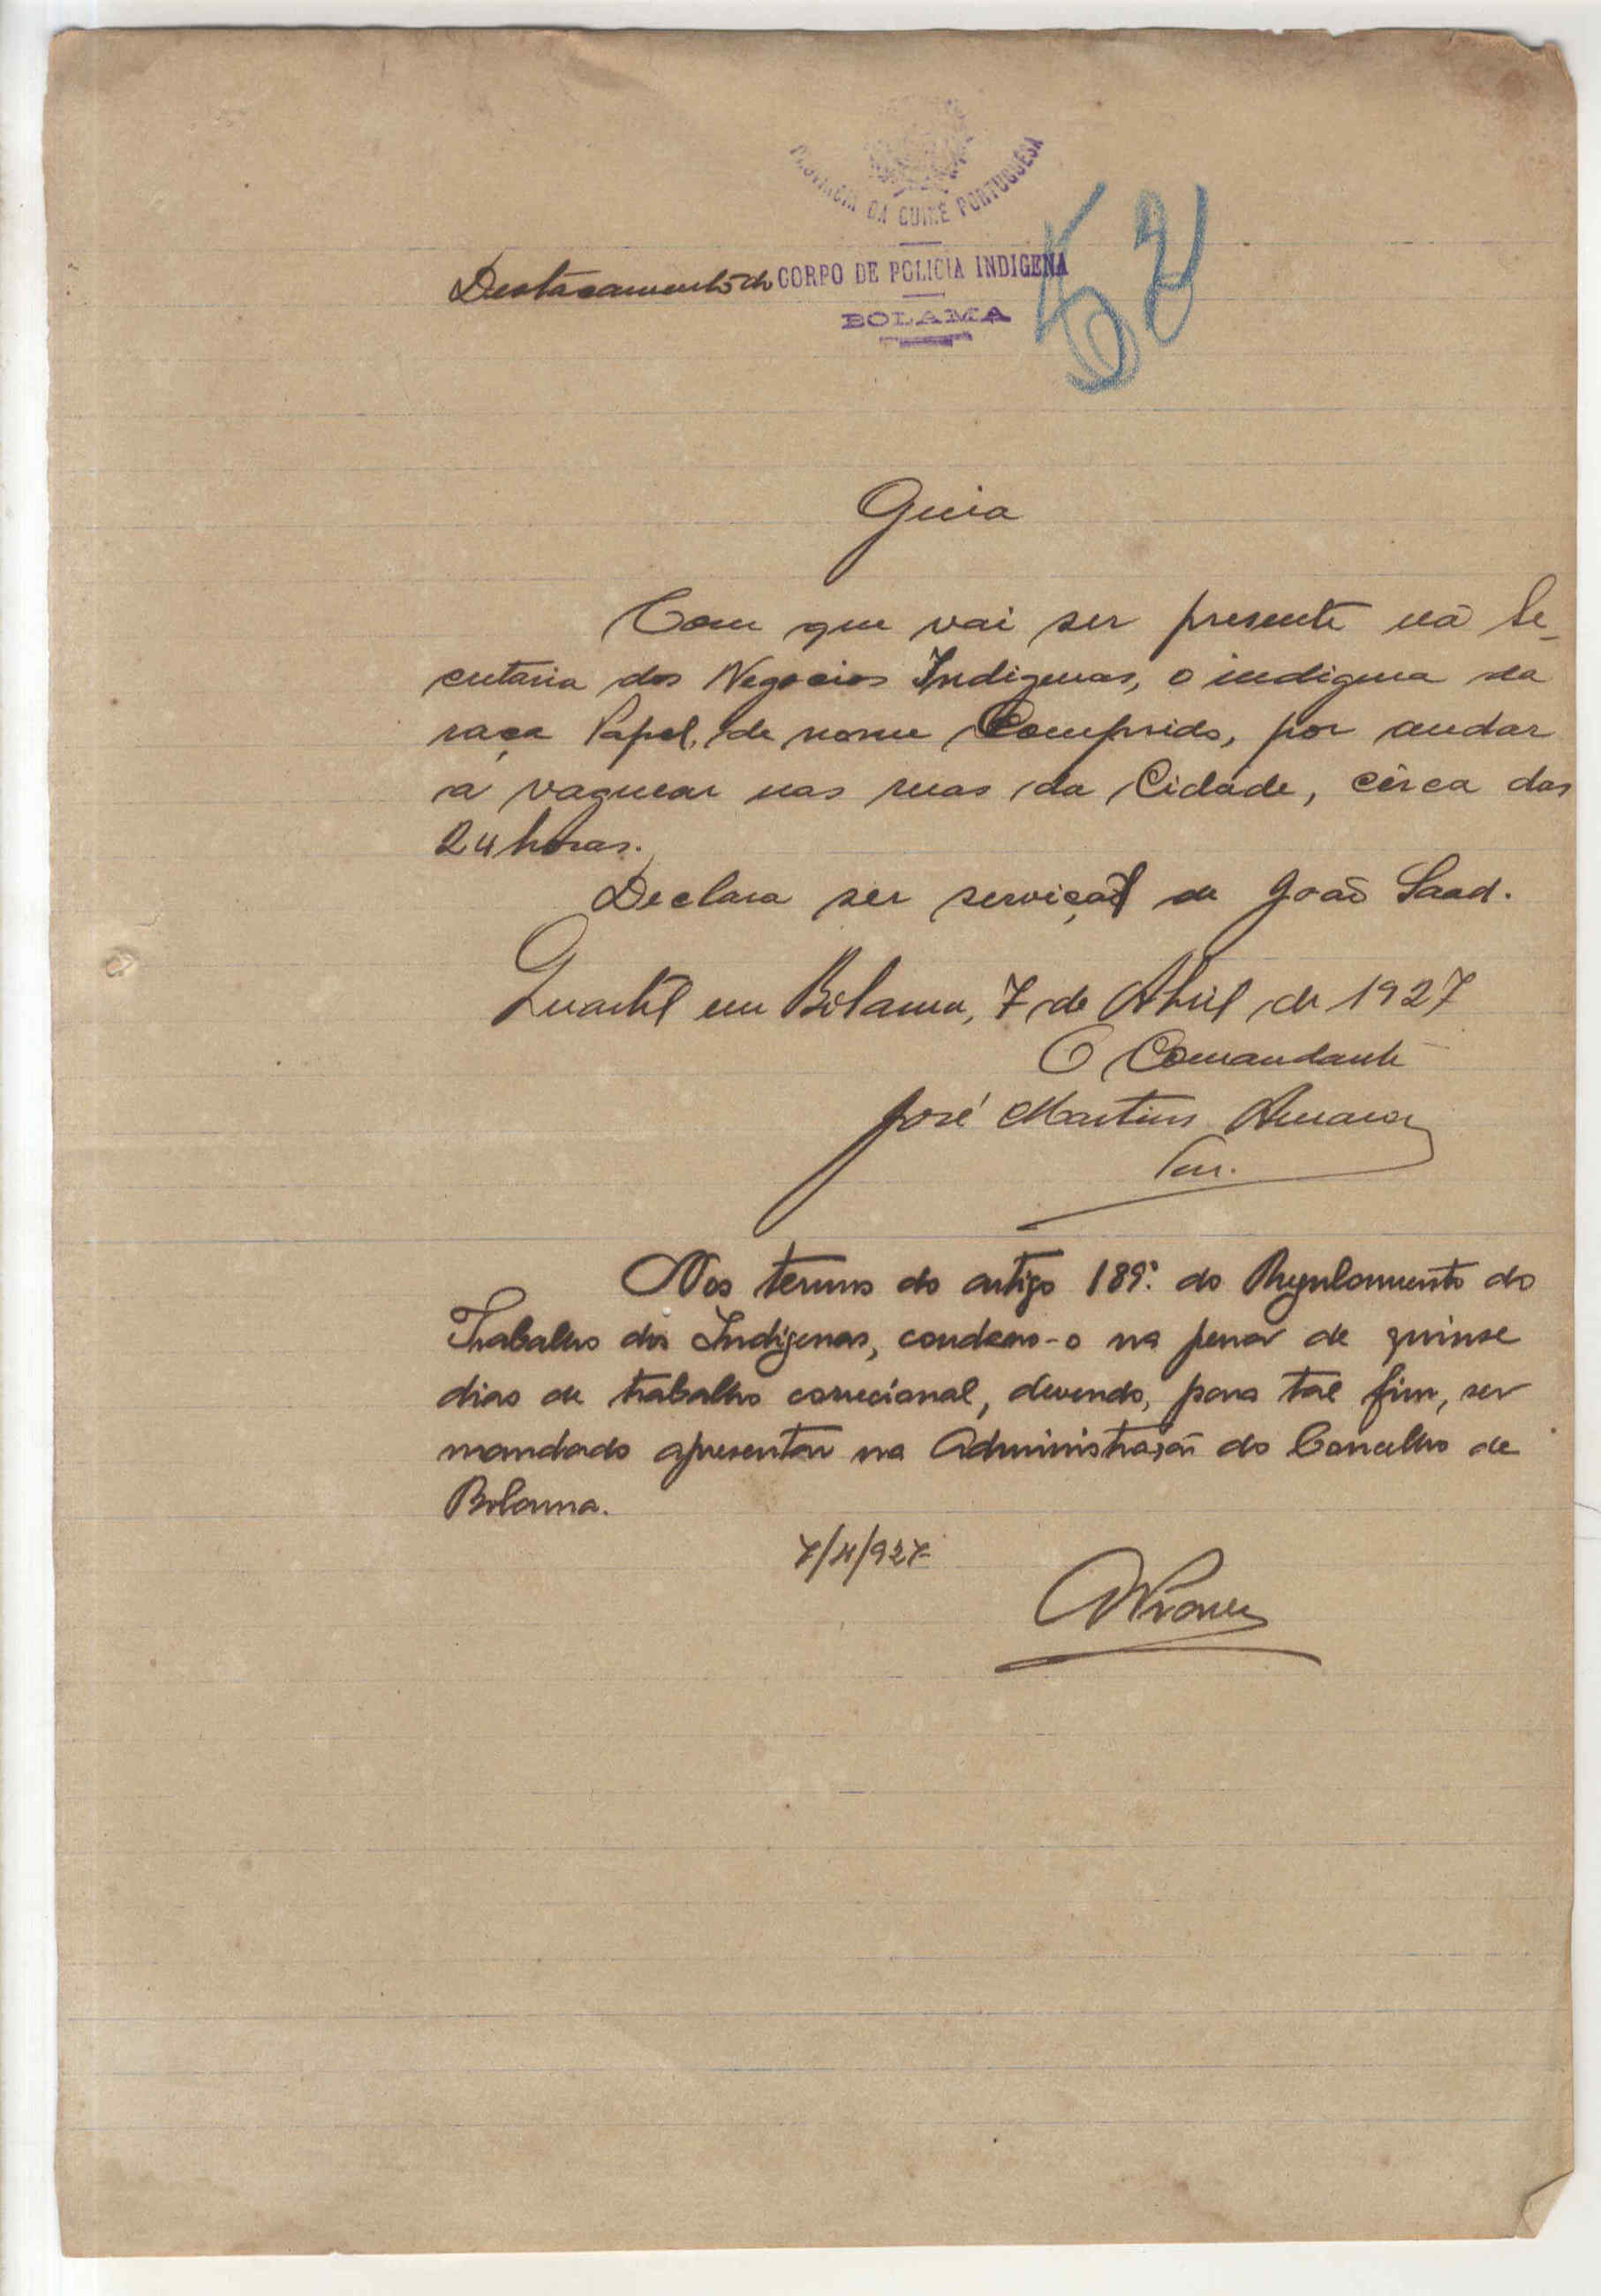 PROVINCIA DA GUINÉ PORTUGUESA
Destacamento do CORPO DE POLICIA INDIGENA
BOLAMA
52
Guia
Com que vai ser presente na Se-
cretaria dos Negocios Indigenas, o indigena da
raça Papel, de nome Comprido, por andar
a vaguear nas ruas da Cidade, cêrca das
24 horas.
Declara ser serviçal de João Saad.
Quartel em Bolama, 7 de Abril de 1927
O Comandante
José Martins
Ten.
Nos termos do artigo 189.º do Regulamento do
Trabalho dos Indigenas, condeno-o na pena de quinse
dias de trabalho correcional, devendo, para tal fim, ser
mandado apresentar na Administração do Concelho de
Bolama.
7/4/927